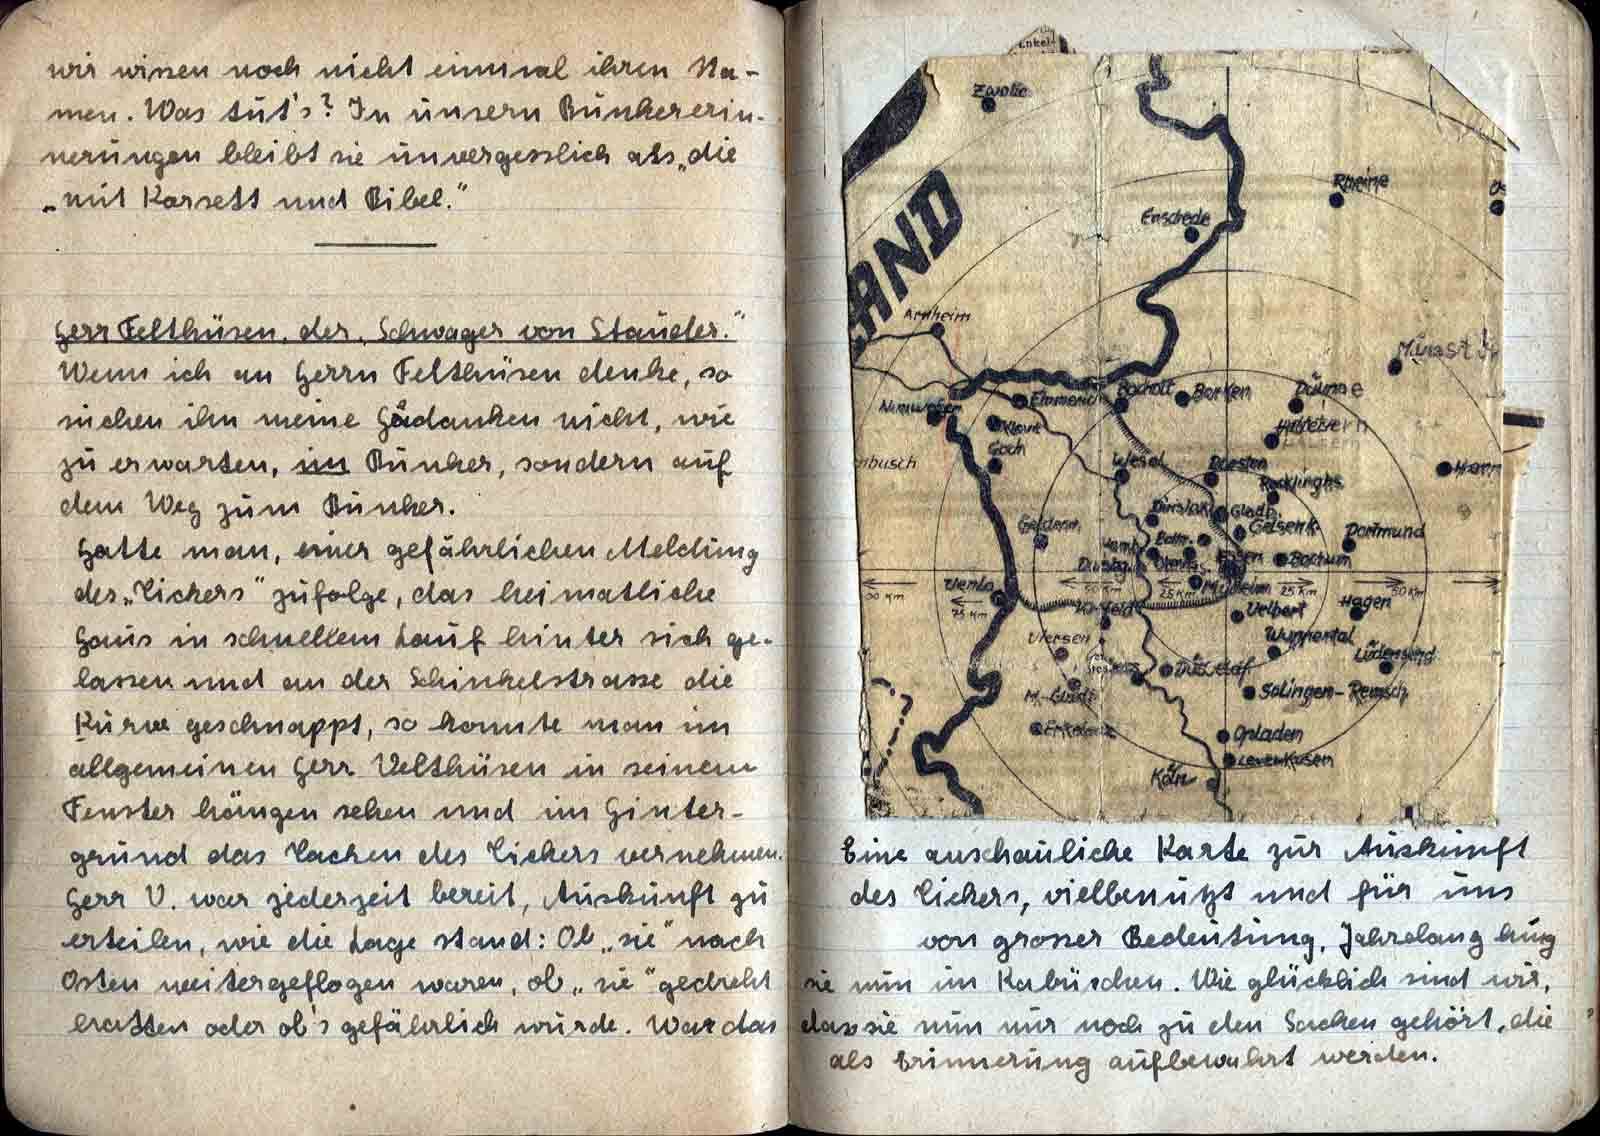 wir wissen noch nicht einmal ihren Na-
men. Was tut's? In unsern Bunkererin-
nerungen bleibt sie unvergesslich als „die
„mit Korsett und Bibel."
Herr Felthüsen, der „Schwager von Stauder."
Wenn ich an Herrn Felthüsen denke, so
suchen ihn meine Gedanken nicht, wie
zu erwarten, im Bunker, sondern auf
dem Weg zum Bunker.
Hatte man, einer gefährlichen Meldung
des „Tickers" zufolge, das heimatliche
Haus in schnellem Lauf hinter sich ge-
lassen und an der Schinkelstrasse die
Kurve geschnappt, so konnte man im
allgemeinen Herr Velthüsen in seinem
Fenster hängen sehen und im Hinter-
grund das Tacken des Tickers vernehmen.
Herr V. war jederzeit bereit, Auskunft zu
erteilen, wie die Lage stand: Ob „sie" nach
Osten weitergeflogen waren, ob „sie" gedreht
hatten oder ob's gefährlich würde. War das
Enkel-
Zwolle
Rheine
Os
Enschede
LAND
Arnheim
Münst
Nimwegen
Emmerich
Bocholt
Borken
Dülme
Kleve
Haltern
Goch
nbusch
Wesel
Dorsten
Hamm
Recklinghs
Dinslak
Gladb.
Geldern
Gelsenk
Dortmund
Hamb
Bottr.
Essen
Bochum
Duisbg
Oberhs
Mülheim
Venlo
00 Km
75 Km
50 Km
25 Km
25 Km
50 Km
Krefeld
Velbert
Hagen
Viersen
Wuppertal
Lüdensend
Düsseldf
M-Gladb
Solingen-Remsch
Erkelenz
Opladen
Leverkusen
Köln
Eine anschauliche Karte zur Auskunft
des Tickers, vielbenutzt und für uns
von grosser Bedeutung. Jahrelang hing
sie nun im Kabüschen. Wie glücklich sind wir,
dass sie nun nur noch zu den Sachen gehört, die
als Erinnerung aufbewahrt werden.